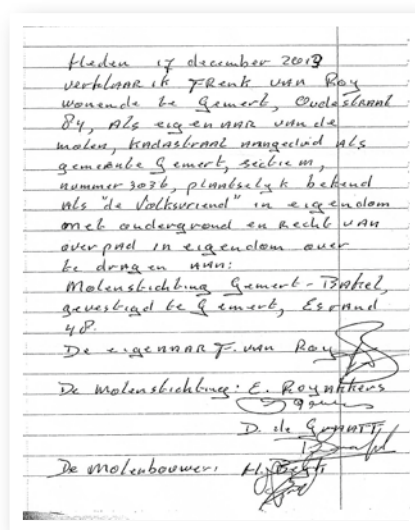 Heden 17 december 2019
verklaar ik Frenk van Roy
wonende te Gemert, Oudestraat
84, Als eigenaar van de
molen, kadastraal aangeduid als
gemeente Gemert, sectie M,
nummer 3036, plaatselyk bekend
als "de Volksvriend" in eigendom
met ondergrond en Recht van
overpad in eigendom over
te dragen aan:
Molenstichting Gemert-Bakel,
gevestigd te Gemert, Esrand
48.
De eigenaar F. van Roy
De Molenstichting: E. Royakkers
D. de
De Molenbouwer: